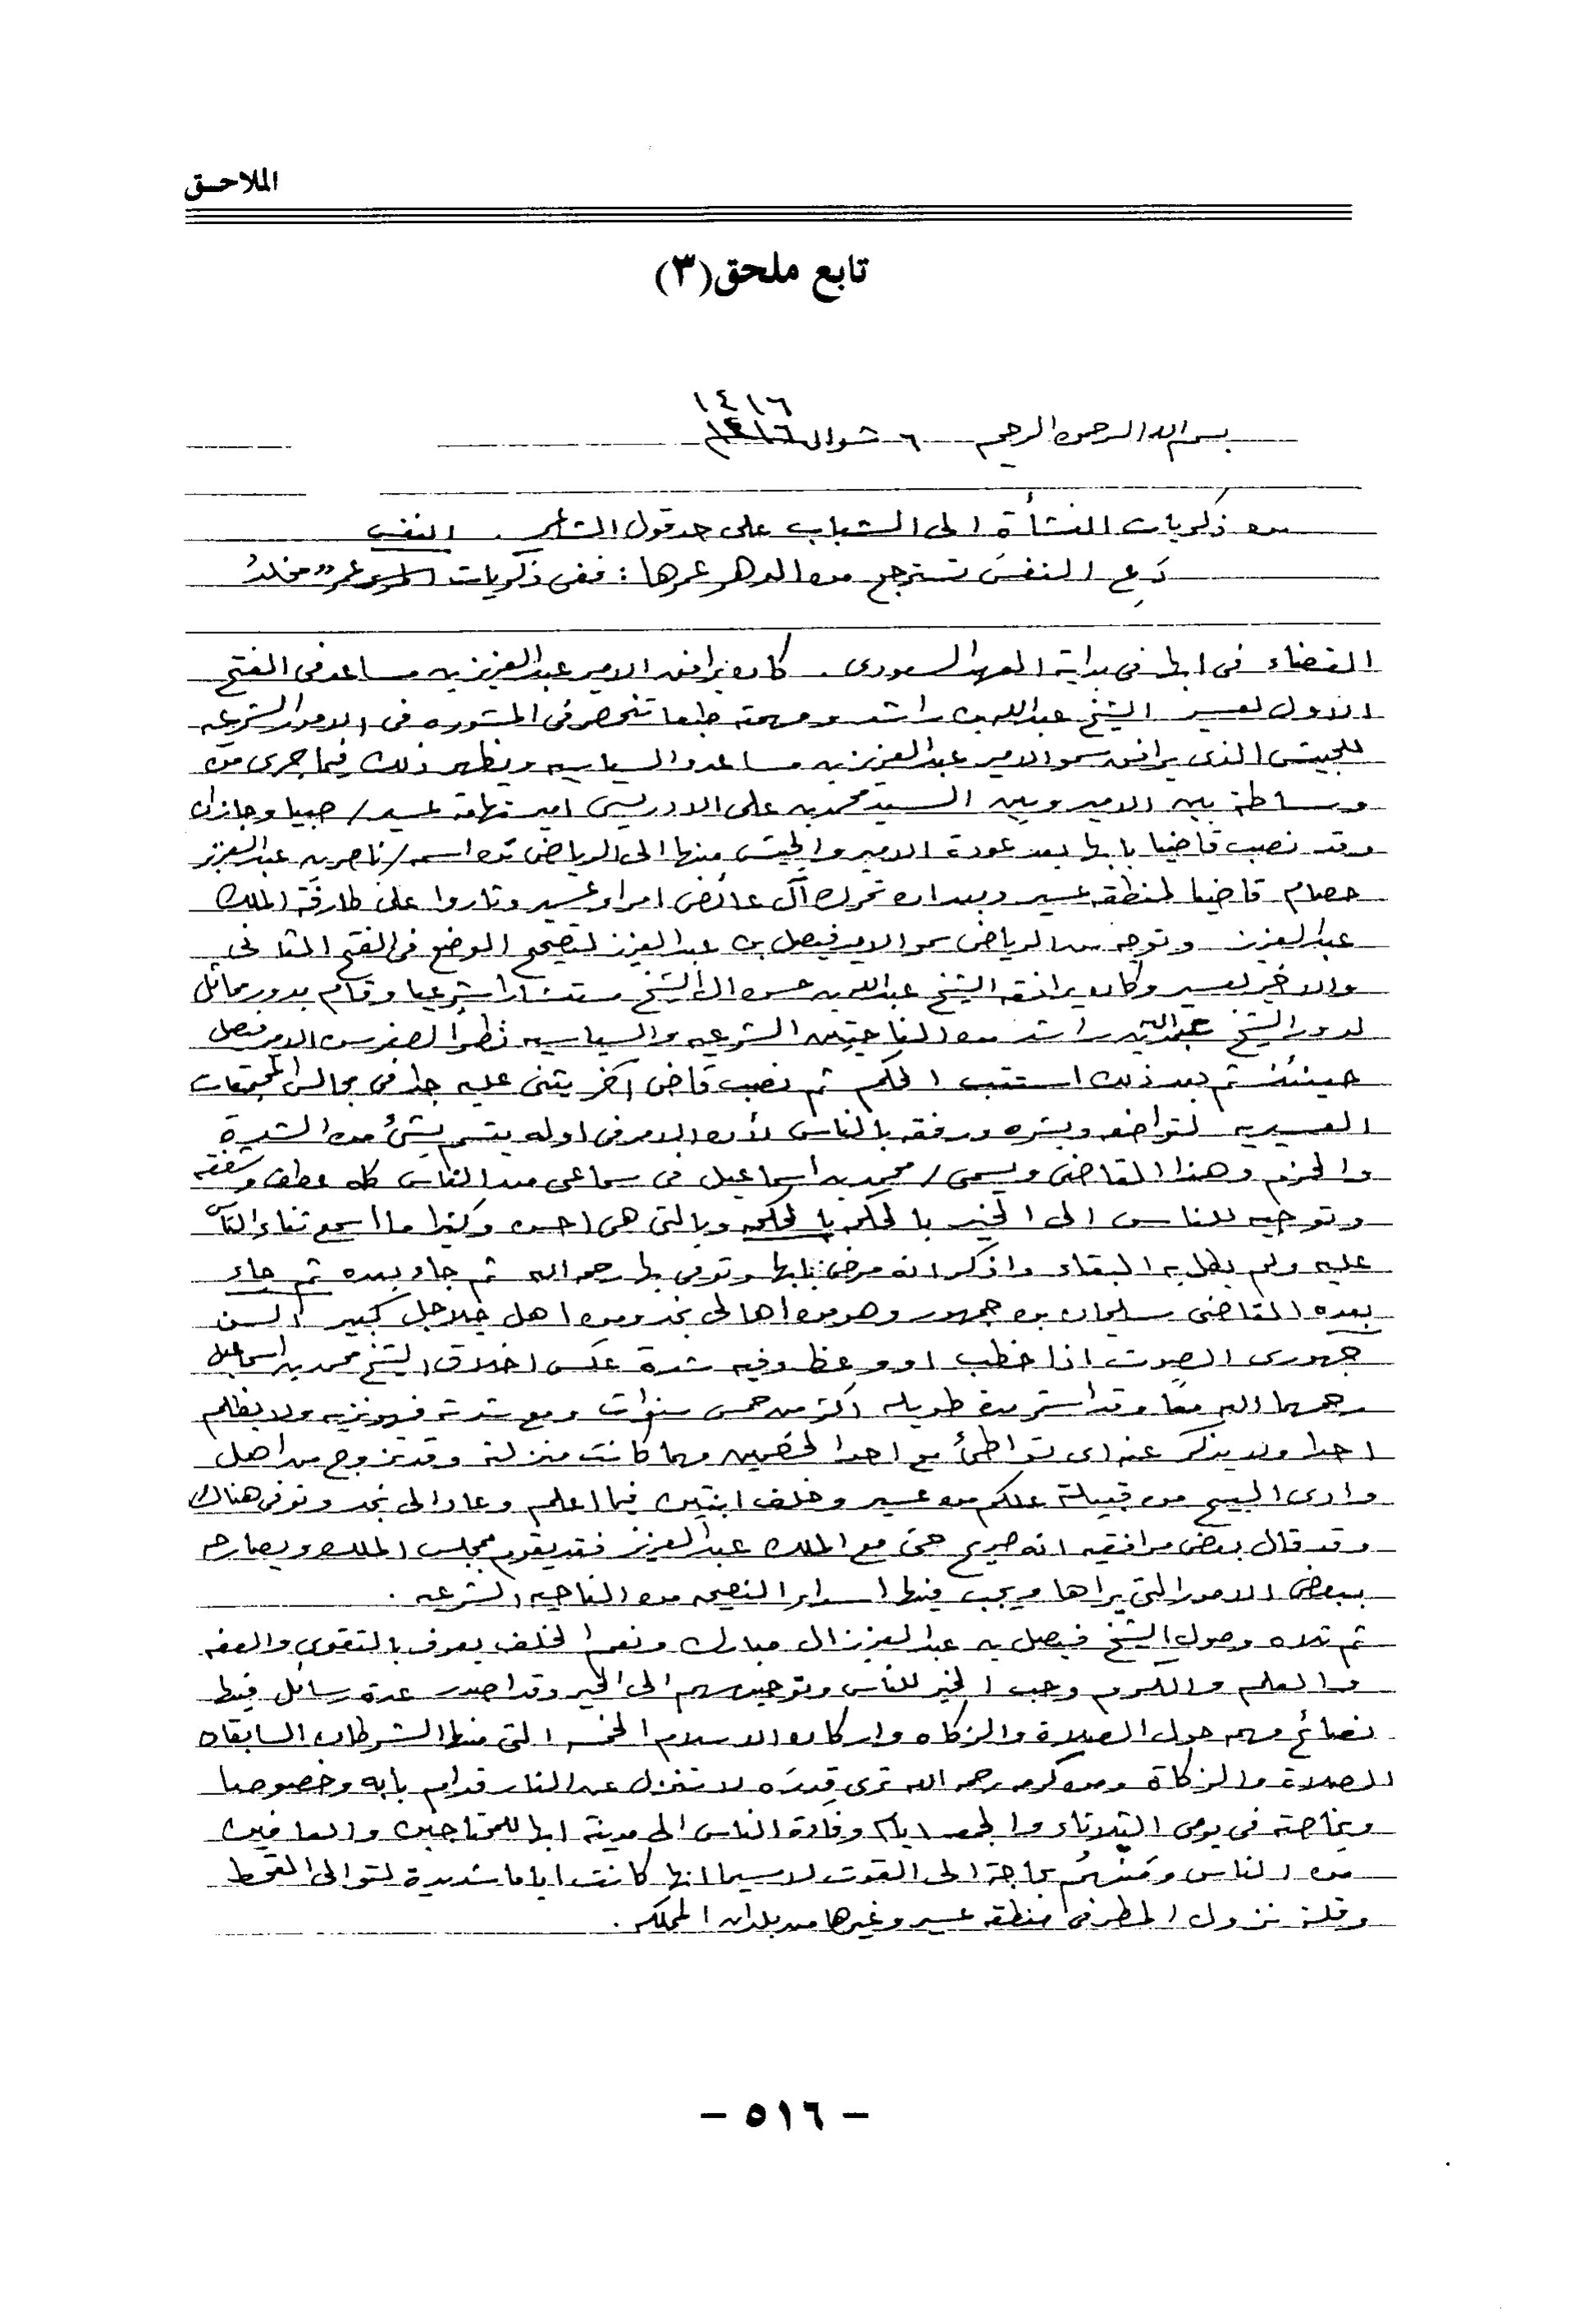 الملاحـق
تابع ملحق(٣)
١٤١٦
بسم الله الرحمن الرحيم ٦ شوال ١٤١٦
من ذكريات النشأة الى الشباب على حد قول الشاعر . النفس
دَعِ النفسَ تسترجع من الدهر عمرها : ففي ذكريات المرء عمر" مخلدُ
القضاء فى ابها فى بداية العهد السعودى . كان يرافق الامير عبدالعزيز بن مساعد فى الفتح
الاول لعسير الشيخ عبدالله بن راشد ومهمته طبعا تنحصر فى المشوره فى الامور الشرعيه
للجيش الذى يرافق سمو الامير عبدالعزيز بن مساعد والسياسيه ويظهر ذلك فيما جرى من
وساطة بين الامير وبين السيد محمد بن على الادريسى امير تهامة عسير / صبيا وجازان
وقد نصب قاضيا بابها بعد عودة الامير والجيش منها الى الرياض تم اسمه / ناصر بن عبدالعزيز
حصام قاضيا لمنطقة عسير وبعد ان تحرك آل عائض امراء عسير وثاروا على طارفَة الملك
عبدالعزيز وتوجه من الرياض سمو الامير فيصل بن عبدالعزيز لتصحيح الوضع فى الفتح الثانى
والاخير لعسير وكان يرافقه الشيخ عبدالله بن حسن ال الشيخ مستشارا شرعيا وقام بدور مماثل
لدور الشيخ عبدالله بن راشد من الناحيتين الشرعيه والسياسيه نظراً لصغر سن الامير فيصل
حينئذ ثم بعد ذلك استتب الحكم ثم نصب قاضى آخر يثنى عليه جدا فى مجالس المجتمعات
العسيريه لتواضعه وبشره ورفقه بالناس لأن الامر فى اوله يتسم بشئ من الشدة
والحزم وهذا القاضى ويسمى / محمد بن اسماعيل فى سماعى من الناس كله عطف وشفقه
وتوجيه للناس الى الخير بالحكمه بالحكمه وبالتى هى احسن وكثيرا ما اسمع ثناء الناس
عليه ولم يطل به البقاء واذكر انه مرض بابها وتوفى بها رحمه الله ثم جاء بعده ثم جاء
بعده القاضى سليمان بن جمهور وهو من اهالى نجد ومن اهل جلاجل كبير السن
جهورى الصوت اذا خطب او وعظ وفيه شدة عكس اخلاق الشيخ محمد بن اسماعيل
رحمهما الله معًا وقد استمر مدة طويله اكثر من خمس سنوات ومع شدته فهو نزيه ولا يظلم
احدا ولا يذكر عنه اى تواطئ مع احدا لخصمين مهما كانت منزلته وقد تزوج من اهل
وادى البيح من قبيلة علكم من عسير وخلف ابنتين فيما اعلم وعاد الى نجد وتوفى هناك
وقد قال بعض مرافقيه انه صريح حتى مع الملك عبدالعزيز فقد يقوم بمجلس الملك ويصارحه
ببعض الامور التى يراها ويجب فيها اسداء النصيحه من الناحيه الشرعيه .
ثم تلاه وصول الشيخ فيصل بن عبدالعزيز ال مبارك ونعم الخلف يعرف بالتقوى والعفه
والعلم والكرم وحب الخير للناس وتوجيههم الى الخير وقد اصدر عدة رسائل فيها
نصائح مهمه حول الصلاة والزكاه واركان الاسلام الخمسه التى منها الشرطان السابقان
الصلاة والزكاة ومن كرمه رحمه الله ترى قِدرَه لا تنزل عن النار قدام بابه وخصوصا
وبخاصة فى يومى الثلاثاء والجمعه ايام وفادة الناس الى مدينة ابها للمحتاجين والعافين
من الناس ومَنْ هُم بحاجة الى القوت لاسيما انها كانت اياما شديدة لتوالى القحط
وقلة نزول المطر فى منطقة عسير وغيرها من بلدان المملكه .
– ٥١٦ –